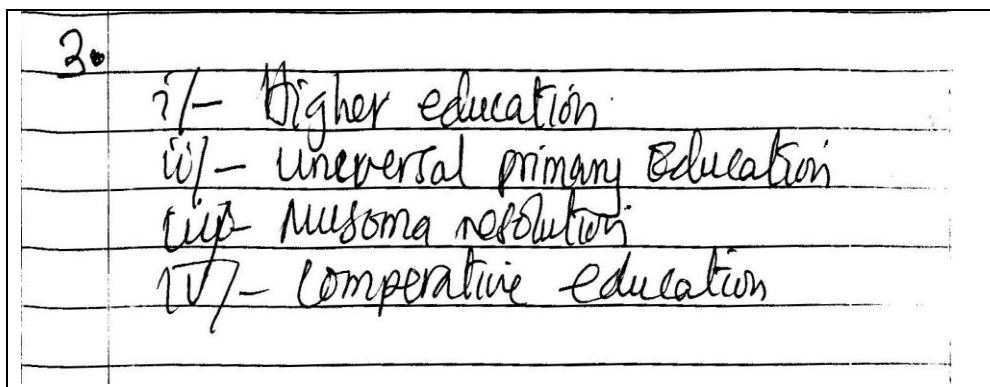 3.
i/- Higher education
ii/- uneversal primary Education
iii/- Musoma resolution
iv/- Comperative education